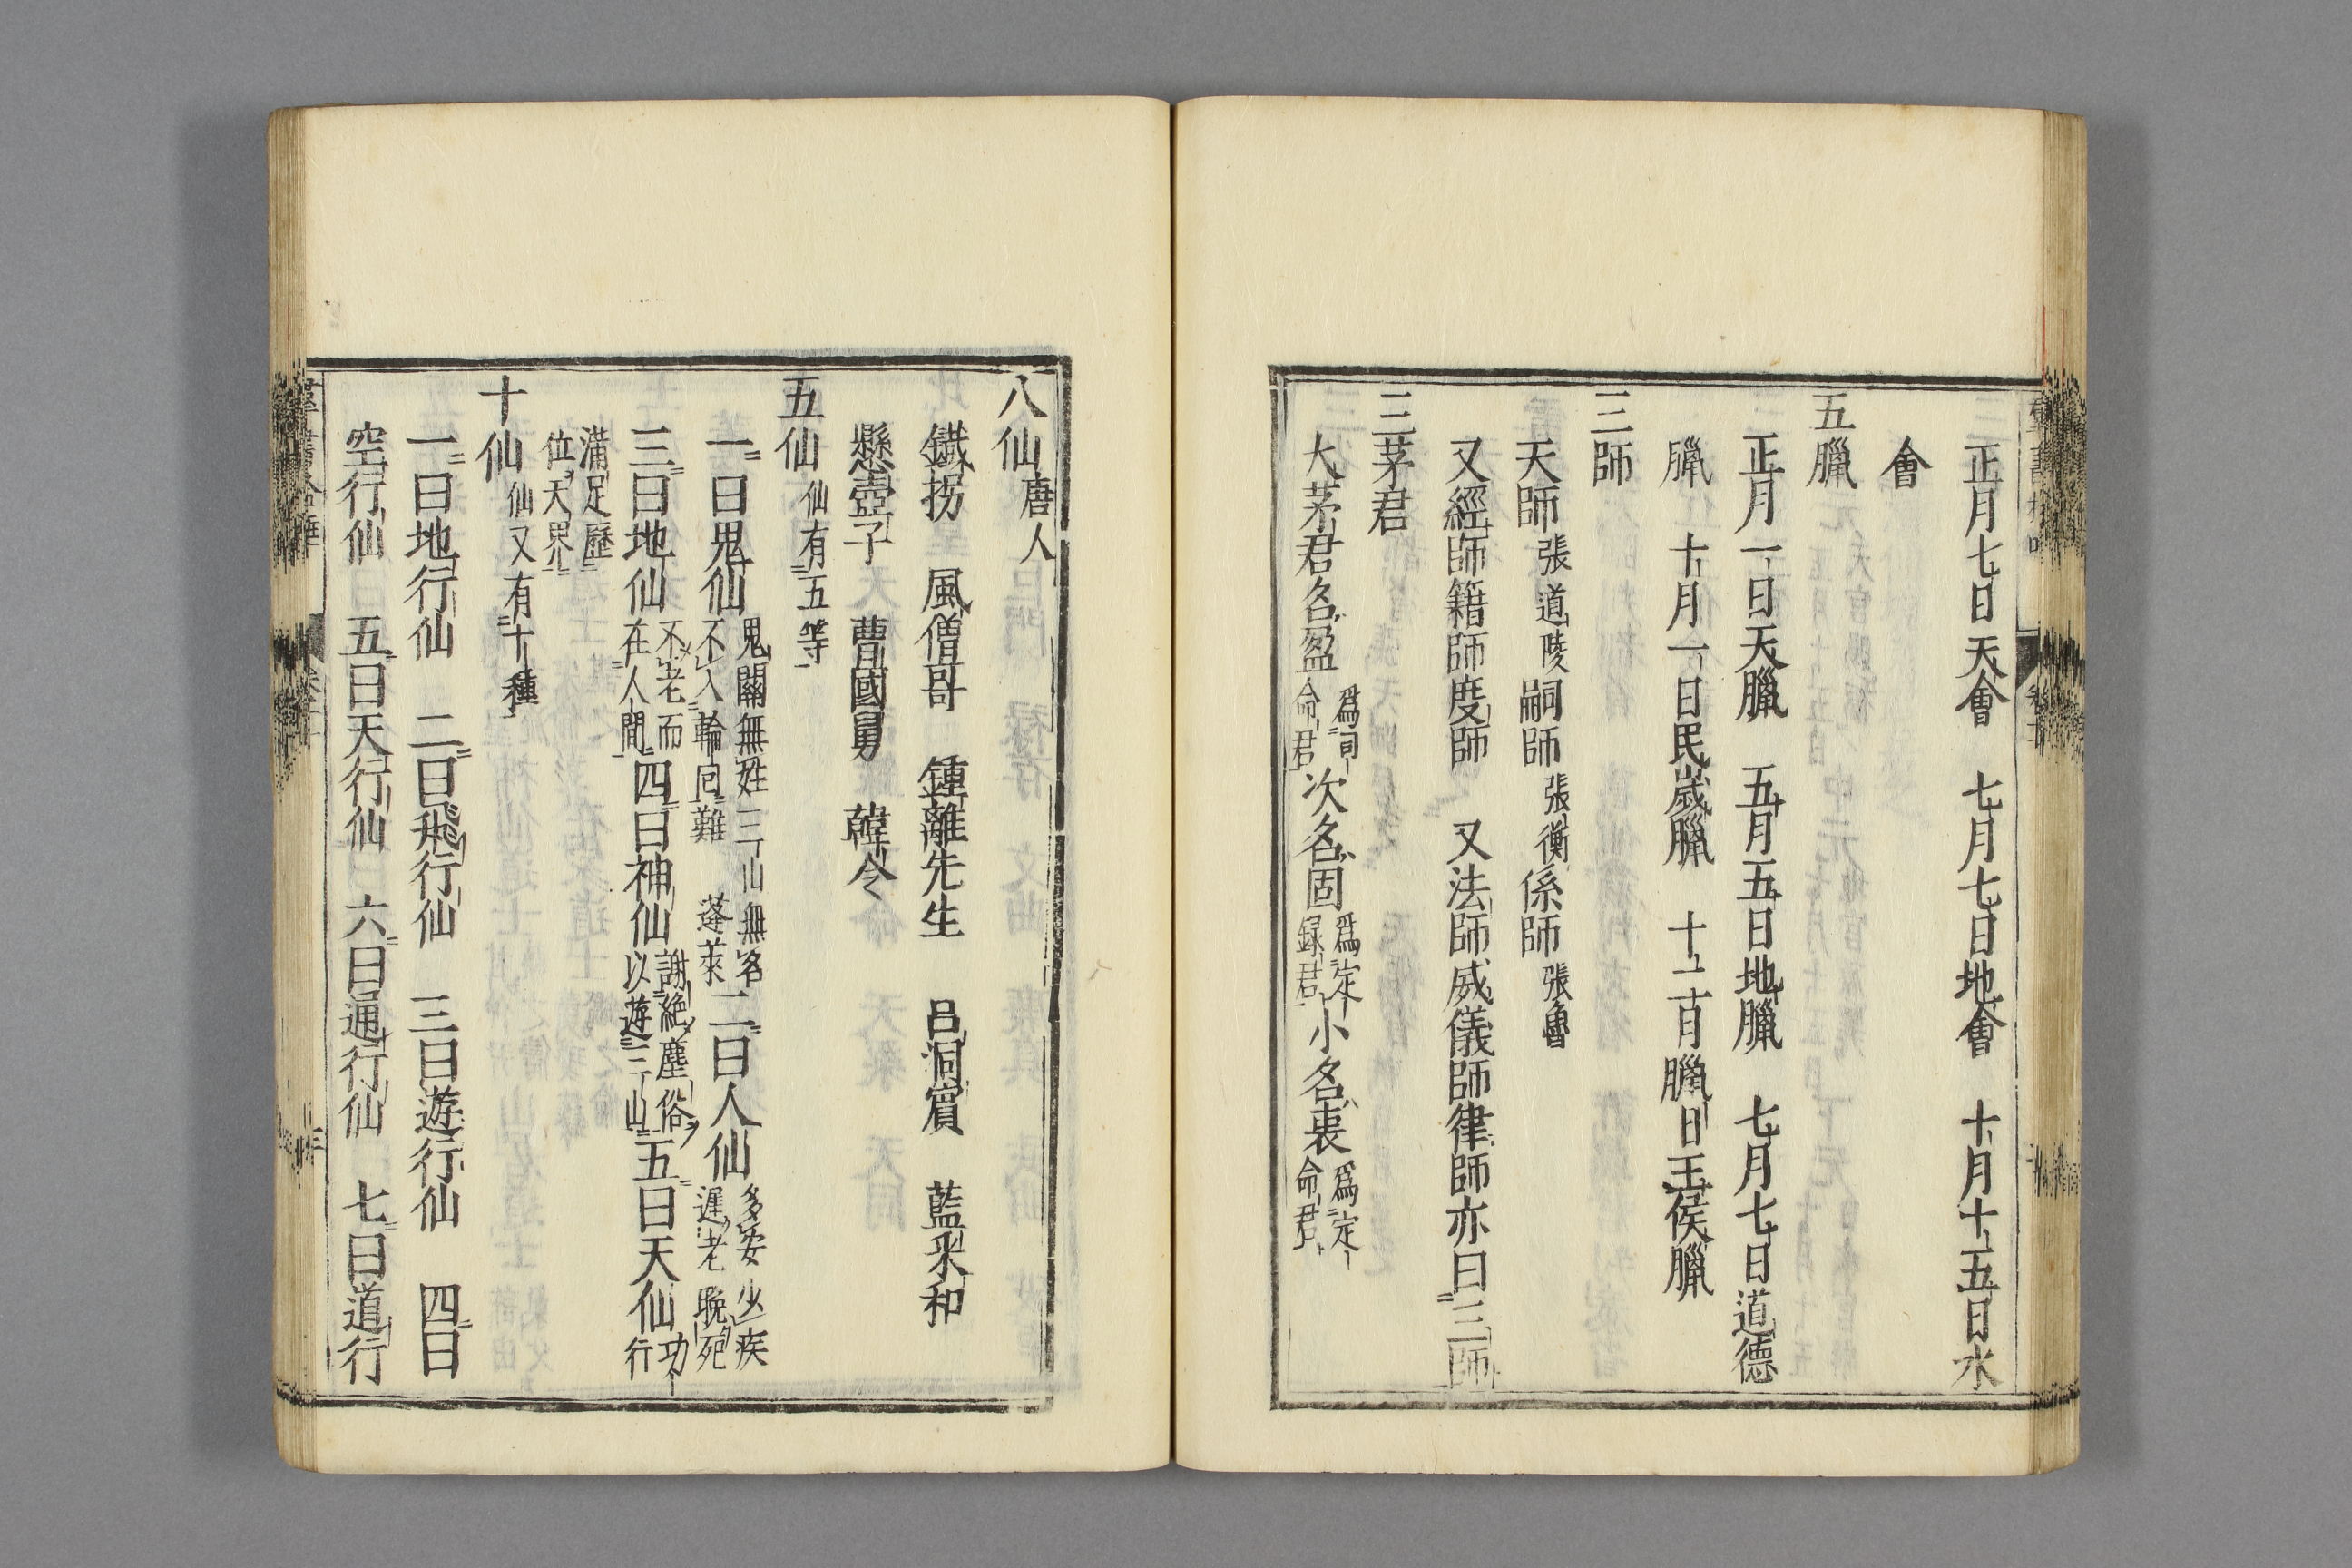 正月七日天會　七月七日地會　十月十五日水
會
五臘
正月一日天臘　五月五日地臘　七月七日道德
臘　十月一日民歲臘　十二月臘日王侯臘
三師
天師張道陵嗣師張衡係師張魯
又經師籍師度師　又法師威儀師律師亦曰三師
三茅君
大茅君名盈爲司命君次名固爲定録君小名衷爲定命君
八仙唐人
鐵拐　風僧哥　鍾離先生　呂洞賔　藍采和
懸壺子　曹國舅　韓令
五仙仙有五等
一曰鬼仙鬼關無姓三山無名不入輪回難　蓬萊二曰人仙多安少疾遲老晩死
三曰地仙不老而在人間四曰神仙謝絶塵俗以遊三山五曰天仙功行
滿足歷位天界
十仙仙又有十種
一曰地行仙　二曰飛行仙　三曰遊行仙　四曰
空行仙　五曰天行仙　六曰通行仙　七曰道行